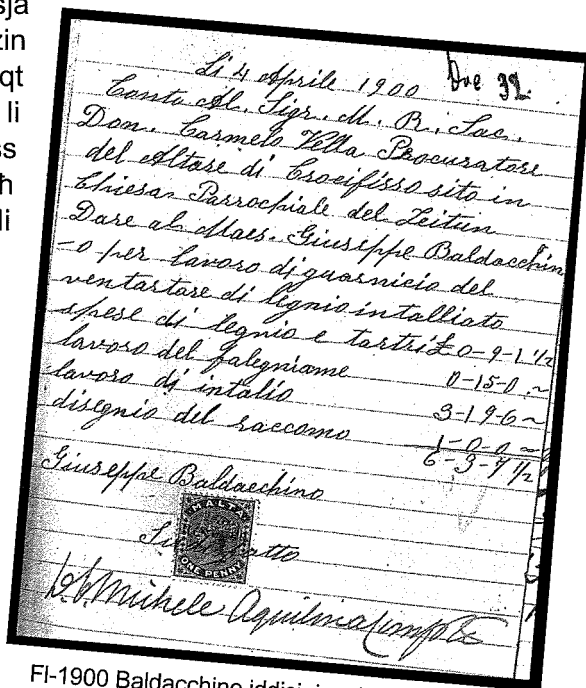 sja
zin
qt
li
ss
h
li
Li 4 Aprile 1900
Dre 32.
Conto Al. Sigr. M. R. Sac.
Don. Carmelo Vella Procuratore
del Altare di Crocifisso sito in
Chiesa Parrochiale del Zeitun
Dare al Maes. Giuseppe Baldacchin
-o per lavoro di guarnicio del
ventartare di legnio intalliato
spese di legnio e tartri £ 0-9-1 1/2
lavoro del falegniame 0-15-0 ~
lavoro di intalio 3-19-6 ~
disegnio del raccomo 1-0-0 ~
6-3-7 1/2
Giuseppe Baldacchino
MALTA
ONE PENNY
Michele Aquilina
Fl-1900 Baldacchino